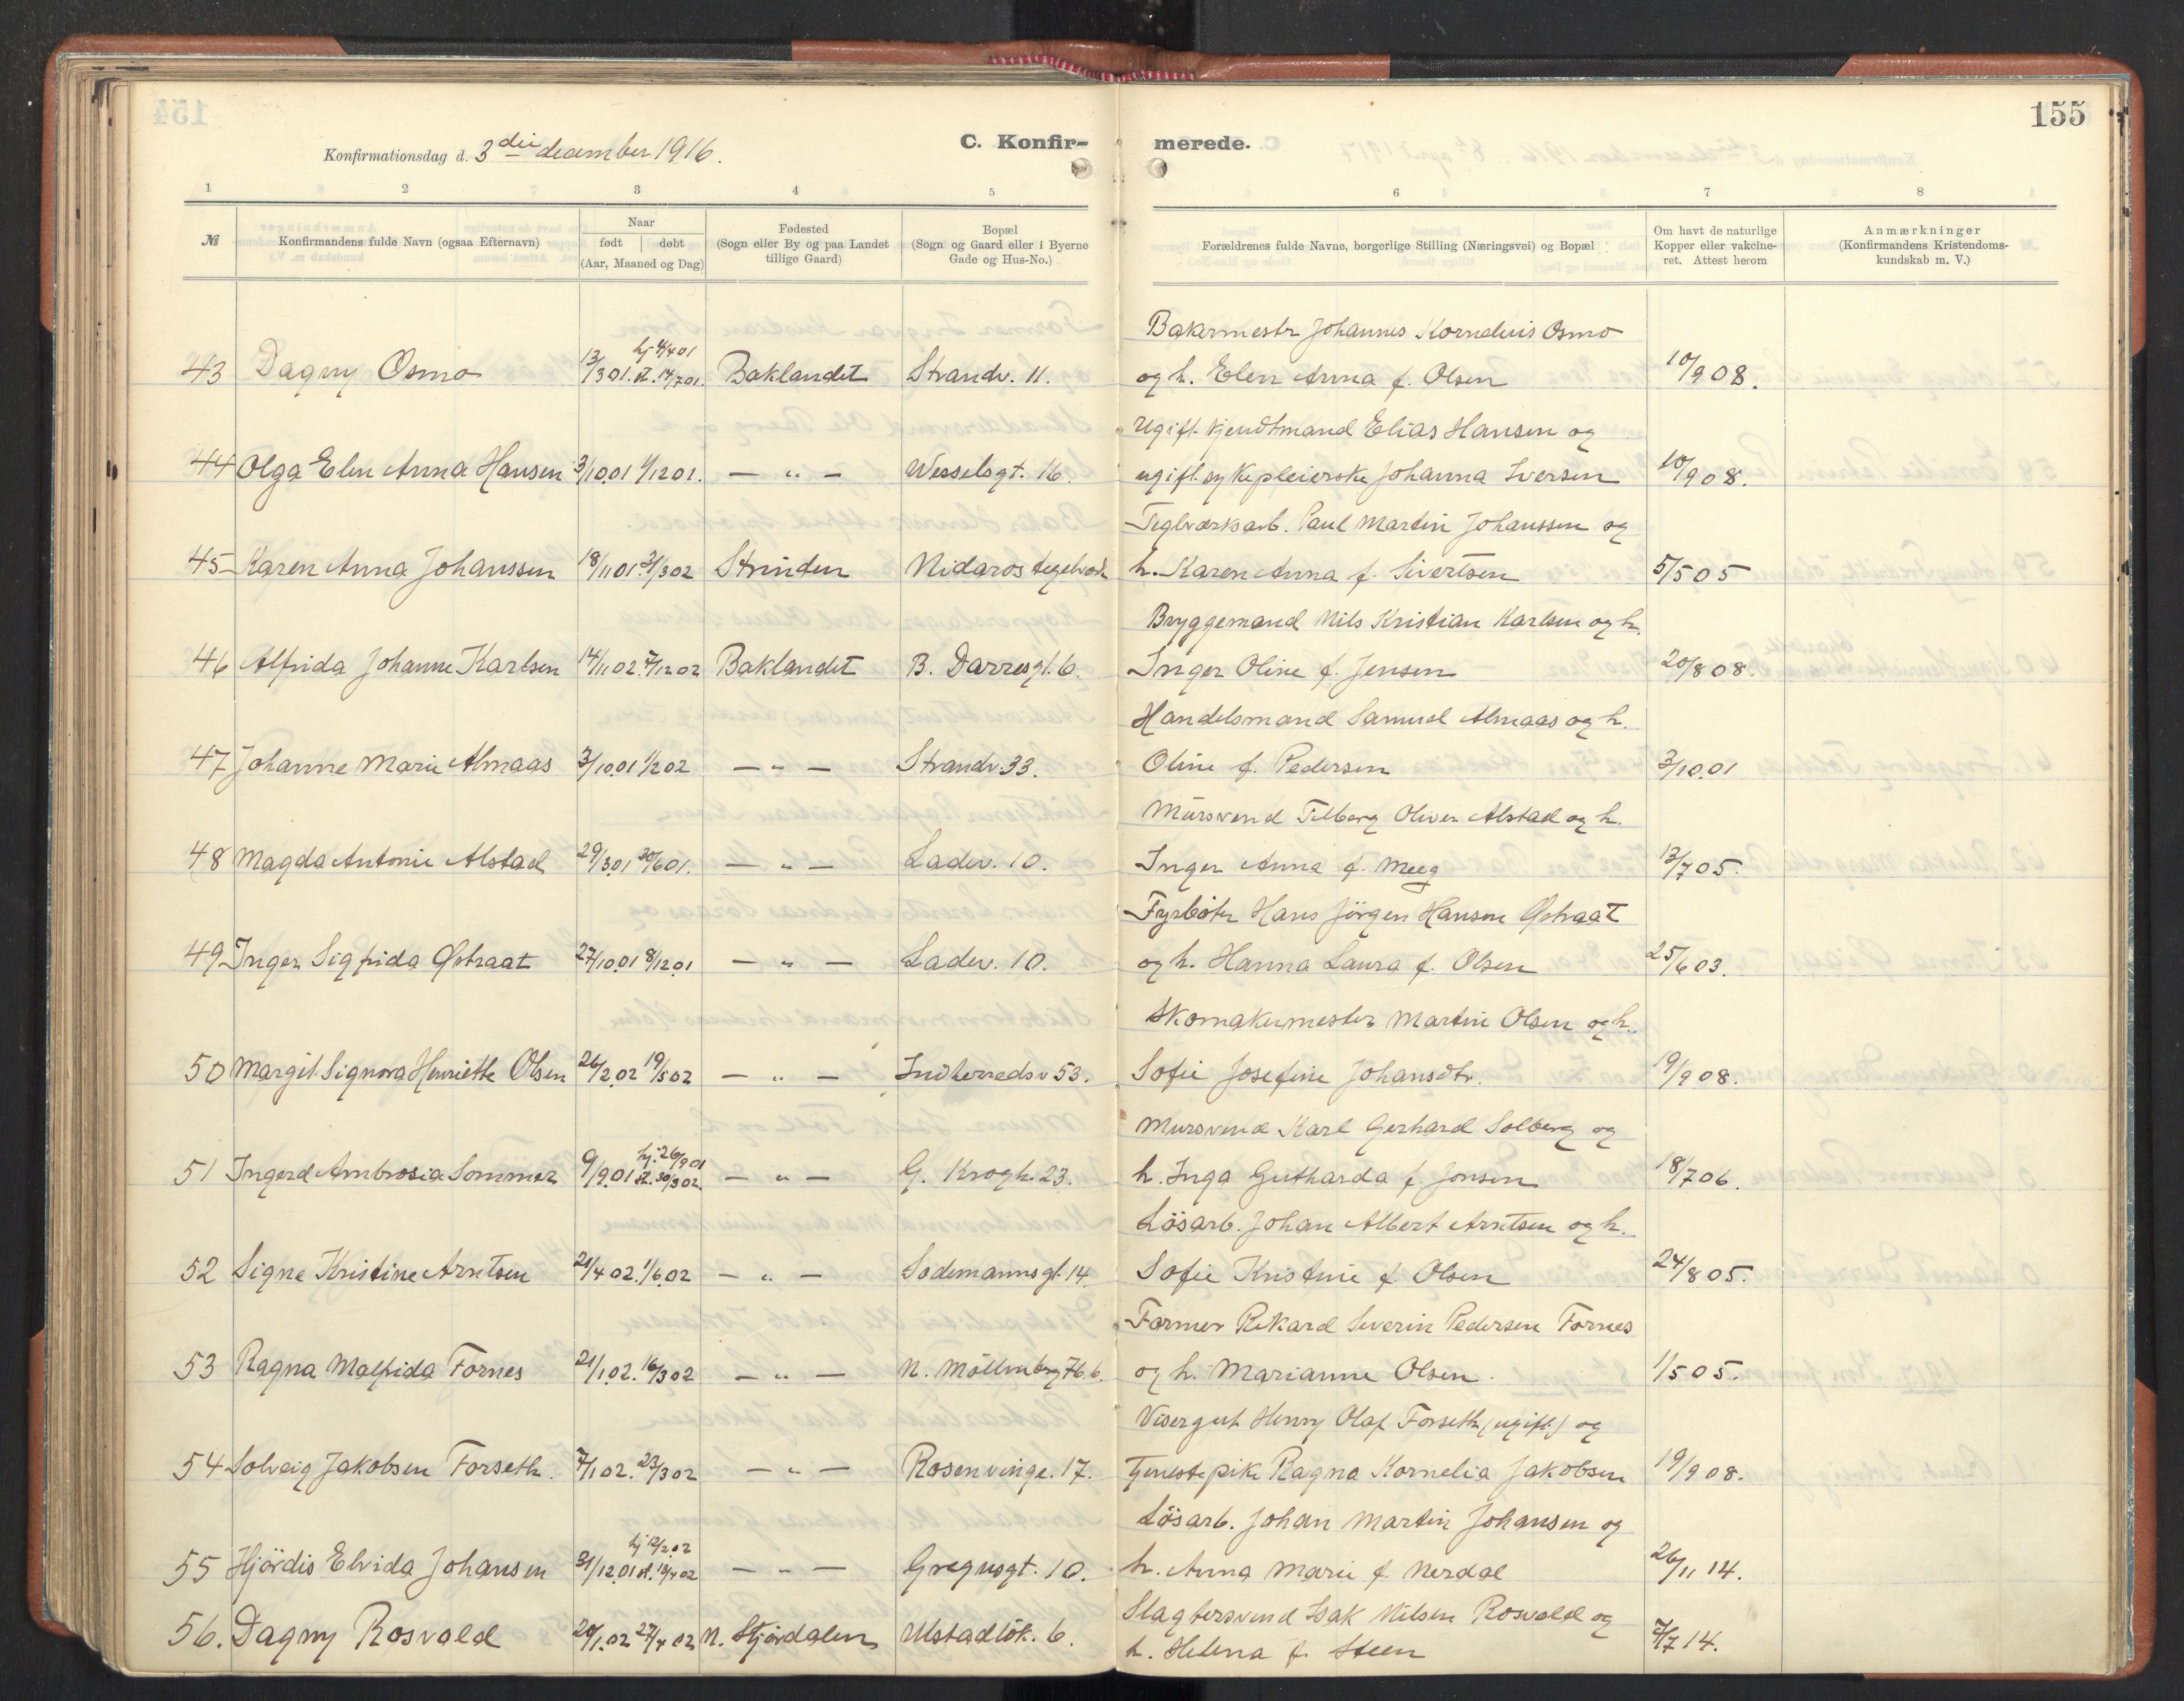 155
Konfirmationsdag d. 3die december 1916.
C. Konfir- merede.
1 2 3 4 5 6 7 8
№
Konfirmandens fulde Navn (ogsaa Efternavn)
Naar
født | døbt
(Aar, Maaned og Dag)
Fødested
(Sogn eller By og paa Landet
tillige Gaard)
Bopæl
(Sogn og Gaard eller i Byerne
Gade og Hus-No.)
Forældrenes fulde Navne, borgerlige Stilling (Næringsvei) og Bopæl
Om havt de naturlige
Kopper eller vakcine-
ret. Attest herom
Anmærkninger
(Konfirmandens Kristendoms-
kundskab m. V.)
Bakermestr Johannes Kornelius Osmo
43 Dagny Osmo 13/3 01. hj 4/4 01 st. 14/7 01. Baklandet Strandv. 11. og h. Elen Anna f. Olsen 10/9 08.
Ugift kjendtmand Elias Hansen og
44 Olga Elen Anna Hansen 3/10 01 1/12 01. — „ — Wesselsgt. 16. ugift sykepleierske Johanna Iversen 10/9 08.
Teglværksarb. Paul Martin Johanssen og
45 Karen Anna Johanssen 18/11 01. 31/3 02 Strinden Nidaros tegelverk h. Karen Anna f. Sivertsen 5/5 05
Bryggemand Nils Kristian Karlsen og h.
46 Alfrida Johanne Karlsen 14/11 02. 7/12 02 Baklandet B. Darresgt. 6. Inger Oline f. Jensen 20/8 08.
Handelsmand Samuel Almaas og h.
47 Johanne Marie Almaas 3/10 01 1/2 02 — „ — Strandv. 33. Oline f. Pedersen 3/10 01
Mursvend Tilberg Oliver Alstad og h.
48 Magda Antonie Alstad 29/3 01 30/6 01. — „ — Ladev. 10. Inger Anna f. Meeg 13/7 05.
Fyrböter Hans Jörgen Hansen Østraat
49 Inger Sigfrida Østraat 27/10 01 8/12 01 — „ — Ladev. 10. og h. Hanna Laura f. Olsen 25/6 03.
Skomakermester Martin Olsen og h.
50 Margit Signora Henriette Olsen 26/2 02 19/5 02 — „ — Indherredsv 53. Sofie Josefine Johansdtr. 19/9 08.
Mursvend Karl Gerhard Solberg og
51 Ingerd Ambrosia Sommer 9/9 01 hj. 26/9 01 st. 30/3 02. — „ — G. Krogh. 23. h. Inga Gutharda f. Jonsen 18/7 06.
Lösarb. Johan Albert Arntsen og h.
52 Signe Kristine Arntsen 21/4 02. 1/6 02 — „ — Sodemannsgt. 14. Sofie Kristine f. Olsen 24/8 05.
Farmer Rikard Severin Pedersen Fornes
53 Ragna Malfrida Fornes 21/1 02. 16/3 02 — „ — N. Möllenberg 76 b. og h. Marianne Olsen. 1/5 05.
Visergut Henry Olaf Forseth (ugift) og
54 Solveig Jakobsen Forseth. 7/1 02. 23/3 02 — „ — Rosenvinge. 17. tjenestepike Ragna Kornelia Jakobsen 19/9 08.
Lösarb. Johan Martin Johansen og
55 Hjördis Elvida Johansen 31/12 01 hj 12/2 02 st. 13/4 02 — „ — Gregusgt. 10. h. Anna Marie f. Nerdal 26/11 14.
Slagtersvend Isak Nilsen Rosvald og
56. Dagny Rosvald 20/1 02 27/4 02 N. Stjördalen Ulstadlök. 6. h. Helena f. Steen 7/7 14.